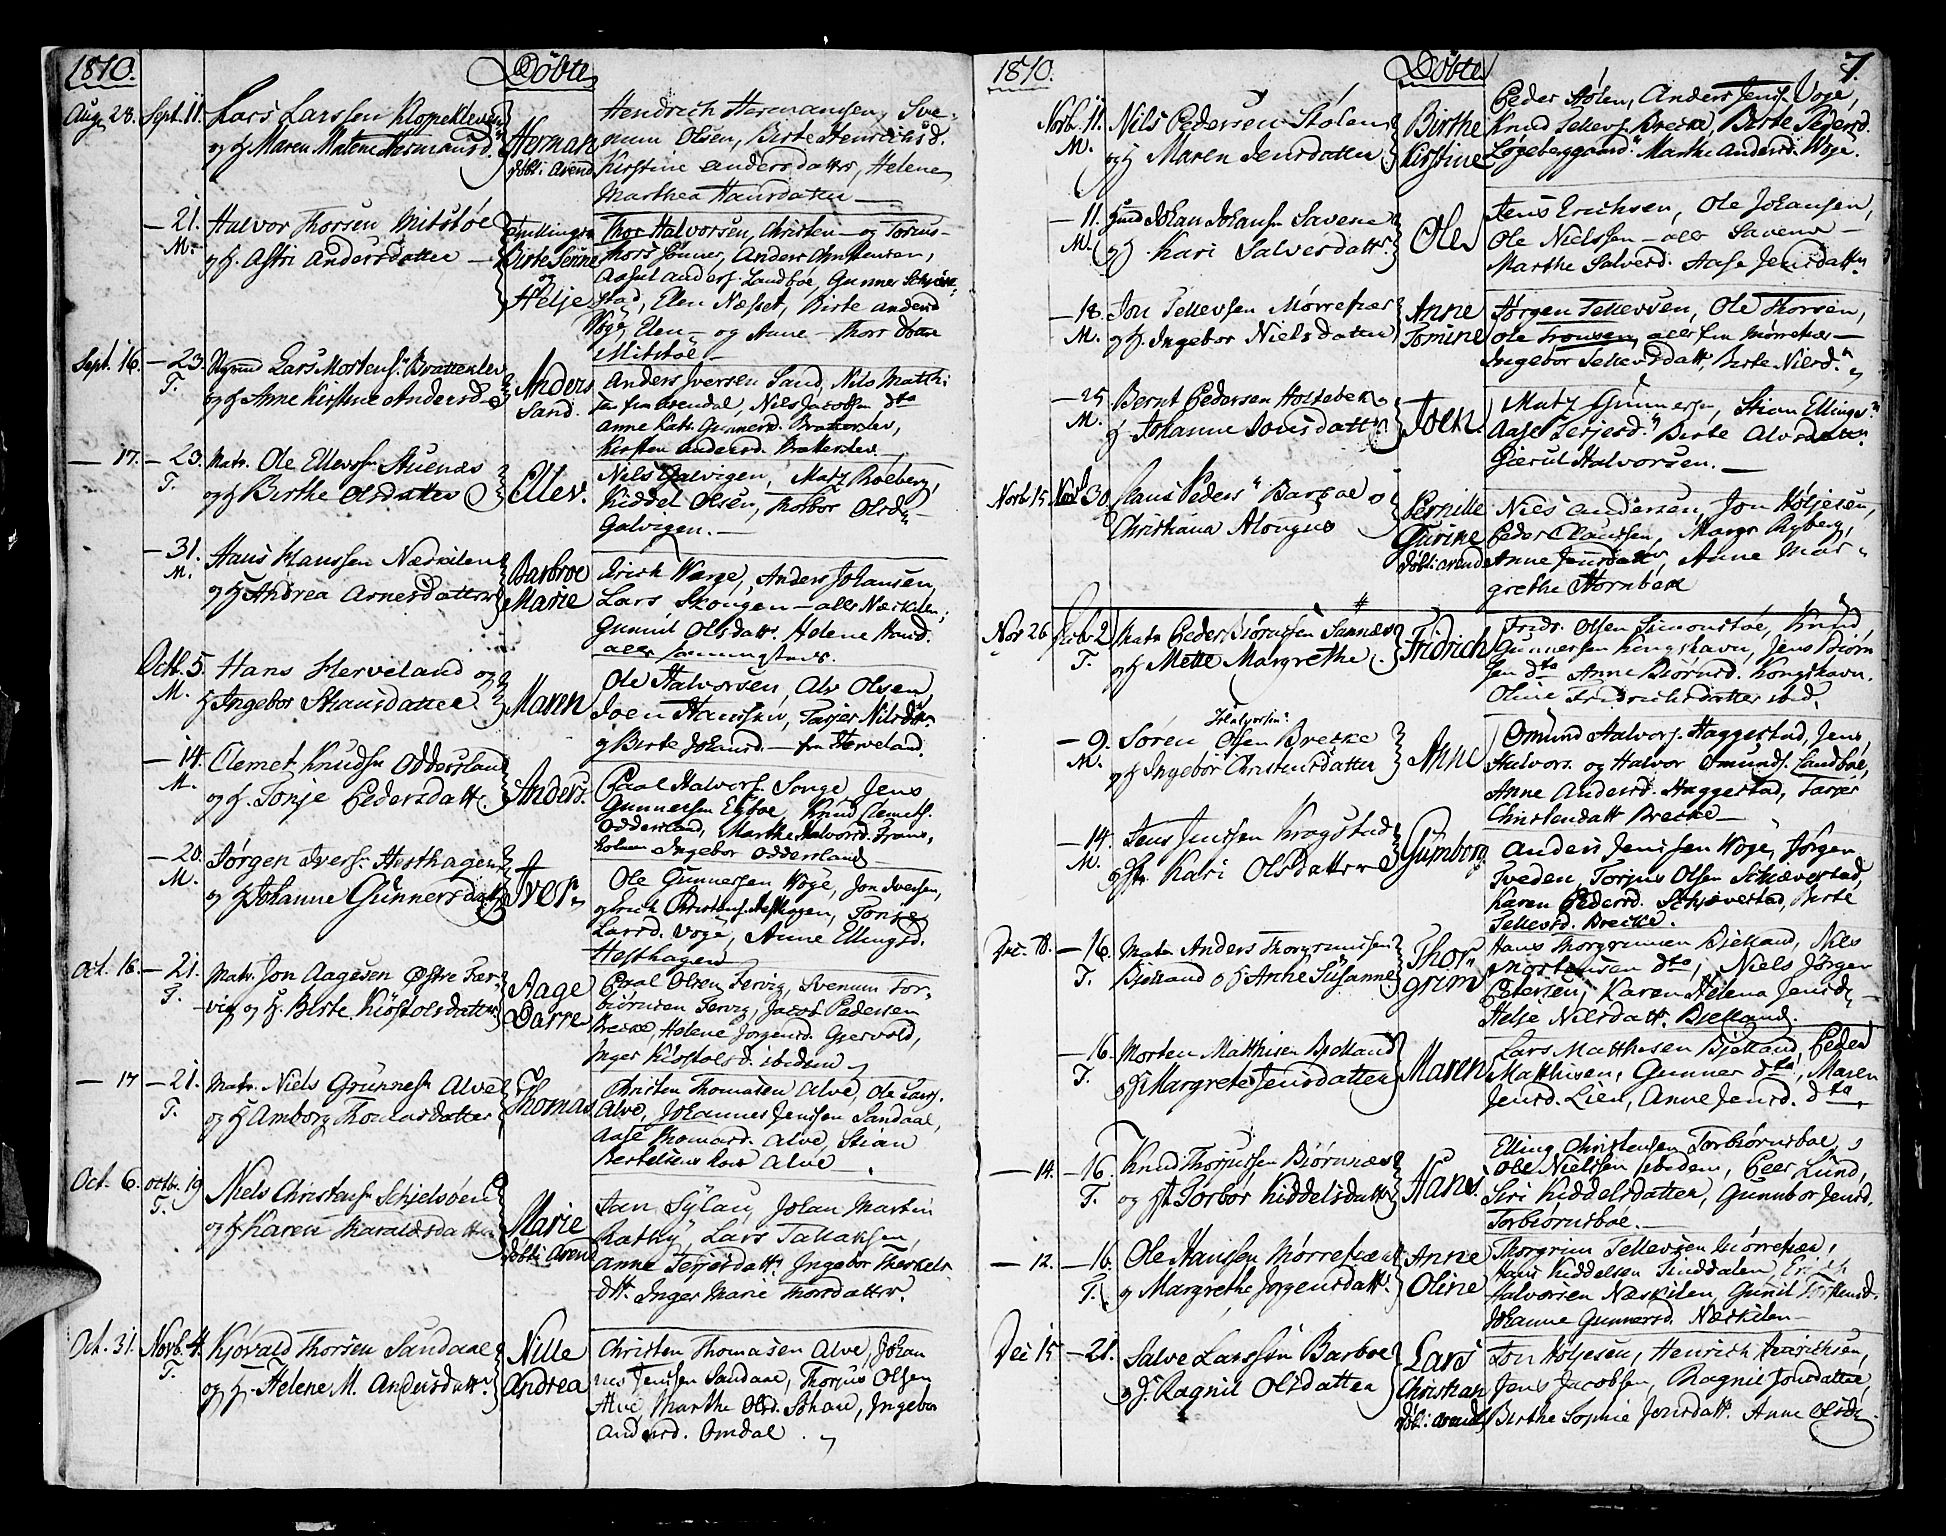 1810.
Döbte
Aug 28. Sept. 11. Lars Larssen Klopekleven
og H Maren Matene Hermansd.
Herman
döbt i arend.
Hendrich Hermansen, Sve-
num Olsen, Birte Henrichsd.
Kirstine Andersdatter, Helene
Marthea Hansdatter
— 21. M. Halvor Thorsen Mitsköe
og H. Astri Andersdatter
Tvillinger
Birte Serine
og
Helje
Thor Halvorsen, Christen — og Torius-
Thors Sönner, Anders Christensen,
Aasul Anders. Landboe, Gunner
stad, Elen Næsset, Birte Andersd
Voge, Elen — og Anne — Thors döttre
Mitsköe —
Sept. 16. — 23. T. Lars Mortens. Bratteklev
og H Anne Kirstine Andersd.
Anders
Sand.
Anders Iversen Sand, Nils Matthi
sen fra Arendal, Nils Jacobsen dto
Anne Katr. Gunnersd. Bratteklev,
Kirsten Andersd. Bratteklev
— 17. — 23. T. Matr. Ole Ellevs. Stuenæs
og H Birthe Olsdatter
Ellev.
Nils Galvigen, Matz Roeberg,
Kiddel Olsen, Thorbor Olsd
Galvigen. —
— 31. M. Hans Hanssen Næskilen
og H Andrea Arnesdatter
Barbroe
Marie
Erich Woege, Anders Johansen,
Lars Skougen — alle Næskilen;
Gunnil Olsdatt. Helene Hansd.
alle sammenstads.
Octb. 5. M. Hans Herveland og
H Ingebor Hansdatter
Maren
Ole Halvorsen, Alv Olsen
Joen Hanssen, Tarjer Nilsdttr.
og Birte Johansd. — fra Herveland.
— 14. M. Clemet Knudsn Oddersland
og H. Tonje Pedersdatt.
Anders.
Paal Halvors. Songe, Jens
Gunnersen Egboe, Knud Clemets.
Oddersland, Marthe Halvorsd. Frams-
Ingebor Oddersland
— 20. M. Jörgen Ivers. Hesthagen
og H Johanne Gunnersdatt.
Iver.
Ole Gunnersen Woge, Jon Iversen,
og Erich Christens. Hesthagen, Tonje
Larsd. Voge, Anne Ellingsd.
Hesthagen
Oct. 16. — 21. T. Matr. Jon Aagesen Östre Fær-
vig og H. Birte Kiöstolsdatter
Aage
Darre
Paal Olsen Fervig, Svenum Tor-
biörnsen Fervig, Jacob Pedersen
Brecke, Helene Jörgensd. Gjervold,
Inger Kiöstolsd. ibidem
— 17 — 21. T. Matr. Niels Gunnersn Alve
og H Amborg Thomasdatter
Thomas
Christen Thomasen Alve, Ole Lars.
Alve, Johannes Jenssen Sandaae,
Aase Thomasd. Alve, Stian
Bertelsens kone Alve
Oct. 6. octb. 19 T. Niels Christens. Schjelsöen
og H Karen Haraldsdatter
Marie
döbt i Arend
Jan Sylau, Johan Martin
Rathy, Lars Tallaksen,
Anne Terjesdatt. Ingebor Therkels-
dtt. Inger Marie Thorsdatter.
Oct. 31. Novb. 4. T. Kjövald Thorsen Sandaae
og H. Helene M. Andersdatt.
Nille
Andrea
Christen Thomasen Alve, Johan
nes Jenssen Sandaae, Thorjus Olsen
Alve Marthe Olsd. ibidem, Ingebor
Andersd. Omdal.
1810.
Döbte
7.
Novb. 11. M. Nils Pedersen Stölen
og H Maren Jensdatter
Birthe
Kirstine
Peder Stölen, Anders Jens. Voge,
Knud Tellevs. Brecke, Birte Pedersd.
Lögeberggaard. Marthe Andersd. Woge.
— 11. M. Johan Johans. Savene
og H. Kari Salvesdatt.
Ole
Jens Erichsen, Ole Johansen,
Ole Nielssen — alle Savene —
Marthe Salvesd. Aase Jensdatt.
— 18. M. Jon Tellevsen Mörrefiær
og H. Ingebor Nielsdatter
Anne
Tomine
Jörgen Tellevsen, Ole Thorsen,
Ole Tronsen, alle fra Mörrefiær —
Ingebor Tellevsdatt, Birte Nilsd.
— 25 M. Bernt Pedersen Holtebek
H Johanne Jonsdatt
Joen
Matz Gunnersen, Stian Ellings.
Aase Terjesd. Birte Alvsdatter
Gierul Halvorsen. —
Novb 15 Novb 30. Claus Peders Barboe
Christiana Alongus
Pernille
Gurine
döbt i arend
Niels Andersen, Jon Höljesen,
Peder Claussen, Margr Ryberg,
Anne Jensdatt, Anne Mar-
grethe Stornbek
Nov 26. Dcbr 2 T. Matr Peder Biörnssen Sannes
og H Mette Margrethe
Fridrich
Fridr. Olsen Simonstöe, Knud
Gunnersen Kongshavn, Jens Biörn
sen dto Anne Biörnsd. Kongshavn.
Oline Fridrichsdatter ibid.
— 9. M. Sören Olsen Brecke
og H Ingebor Christensdatter
Anne
Omund Halvors. Haggestad, Jens
Halvors. og Halvor Omunds. Landboe,
Anne Andersd. Haggestad, Tarjer
Christendatt Brecke —
— 14. M. Jens Jenssen Kragstad
og H Kari Olsdatter
Gunborg
Anders Jenssen Woge, Jörgen
Tveden, Torjus Olsen Schævestad,
Karen Pedersd. Schjævestad, Birte
Tellevsd. Brecke.
Dec. 10. — 16. T. Matr Anders Thorgrimsen
Bjelland og H Anne Susanne
Thor-
grim
Hans Thorgrimsen Bjelland, Nils
Mortensen dto, Niels Jörgen
Petersen, Karen Helena Jensd.
Helje Nilsdatt. Bjelland.
— 16. T. Morten Matthisen Bjelland
og H Margrete Jensdatter
Maren
Lars Matthisen Bjelland, Peder
Matthisen, Gunner dto, Maren
Jensd. Lien, Anne Jensd. dto
— 14. — 16 T. Knud Thorjussen Björnnæs
og H Torbor Kiddelsdatter
Hans.
Elling Christensen Torbiörnsboe,
Ole Nielssen ibidem, Peer Lund,
Siri Kiddelsdatter, Gunnbor Jensd.
Torbiörnsboe. —
— 12. — 16. T. Ole Hanssen Mörrefiær
og Margrethe Jorgensdatt.
Anne
Oline
Thorgrim Tellevsen Mörrefiær,
Hans Kiddelsen Sinddalen, Erich
Halvorsen Næskilen, Gunil Torstensd.
Johanne Gunnersd. Næskilen —
Dec 15 — 21. Salve Larssen Barboe
og H. Ragnil Olsdatter
Lars
Christian
döbt i arend
Jon Höljesen, Henrich Henrichsen,
Jens Jacobsen, Ragnil Jonsdatter,
Birthe Sophie Jensdatt. Anne Olsdr.